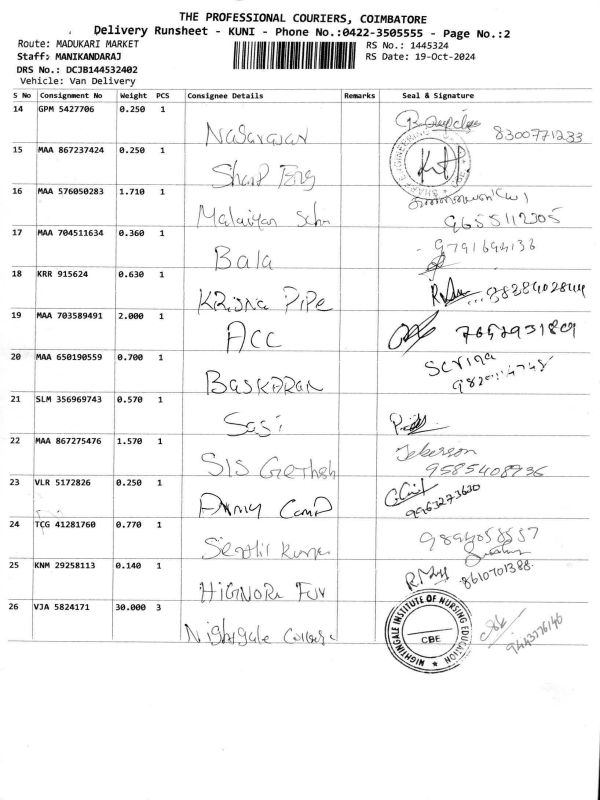 THE PROFESSIONAL COURIERS, COIMBATORE
Delivery Runsheet - KUNI - Phone No.:0422-3505555 - Page No.:2
Route: MADUKARI MARKET RS No.: 1445324
Staff: MANIKANDARAJ RS Date: 19-Oct-2024
DRS No.: DCJB144532402
Vehicle: Van Delivery
S No Consignment No Weight PCS Consignee Details Remarks Seal & Signature
14 GPM 5427706 0.250 1
Nagarajan 8300771233
15 MAA 867237424 0.250 1
Sharp Eng
16 MAA 576050283 1.710 1
Malaiyan 9655112305
17 MAA 704511634 0.360 1
Bala
18 KRR 915624 0.630 1
Krisna Pipe
19 MAA 703589491 2.000 1
ACC
20 MAA 650190559 0.700 1
BASKARAN
21 SLM 356969743 0.570 1
Sasi
22 MAA 867275476 1.570 1
SIS Jeberson
9585408936
23 VLR 5172826 0.250 1
Army Camp 9963273630
24 TCG 41281760 0.770 1
Senthil Kumar
25 KNM 29258113 0.140 1
8610701388
26 VJA 5824171 30.000 3
NIGHTINGALE INSTITUTE OF NURSING EDUCATION
CBE
Nightgale College 9443776146